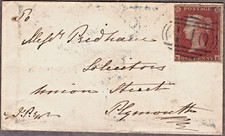 Messrs Bridham
Solicitors
Union Street
Plymouth
ONE PENNY